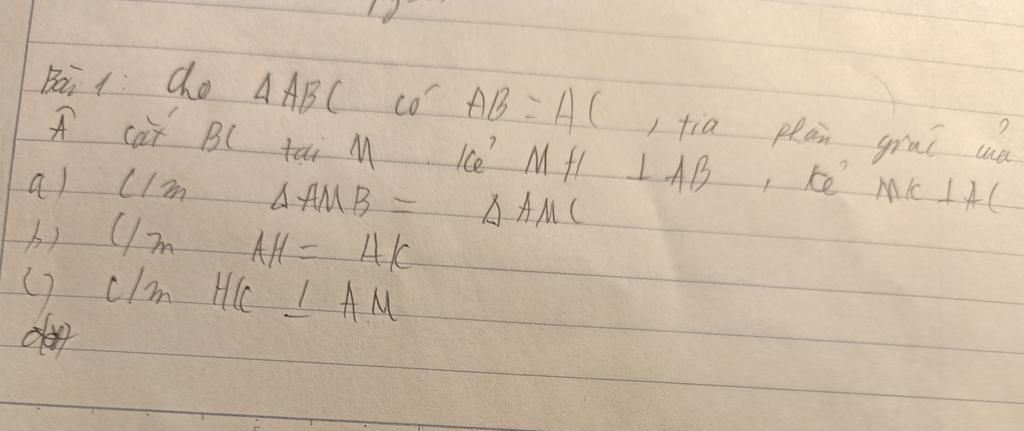 Bài 1: Cho ΔABC có AB = AC, tia phân giác của
Â cắt BC tại M. Kẻ MH ⊥ AB, kẻ MK ⊥ AC
a) C/m ΔAMB = ΔAMC
b) C/m AH = AK
c) c/m HK ⊥ AM